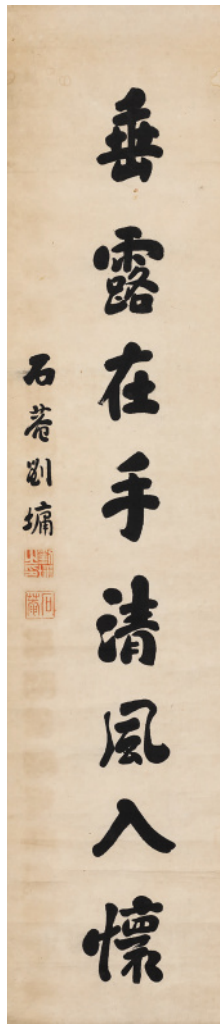 垂露在手清風入懷
石菴劉墉